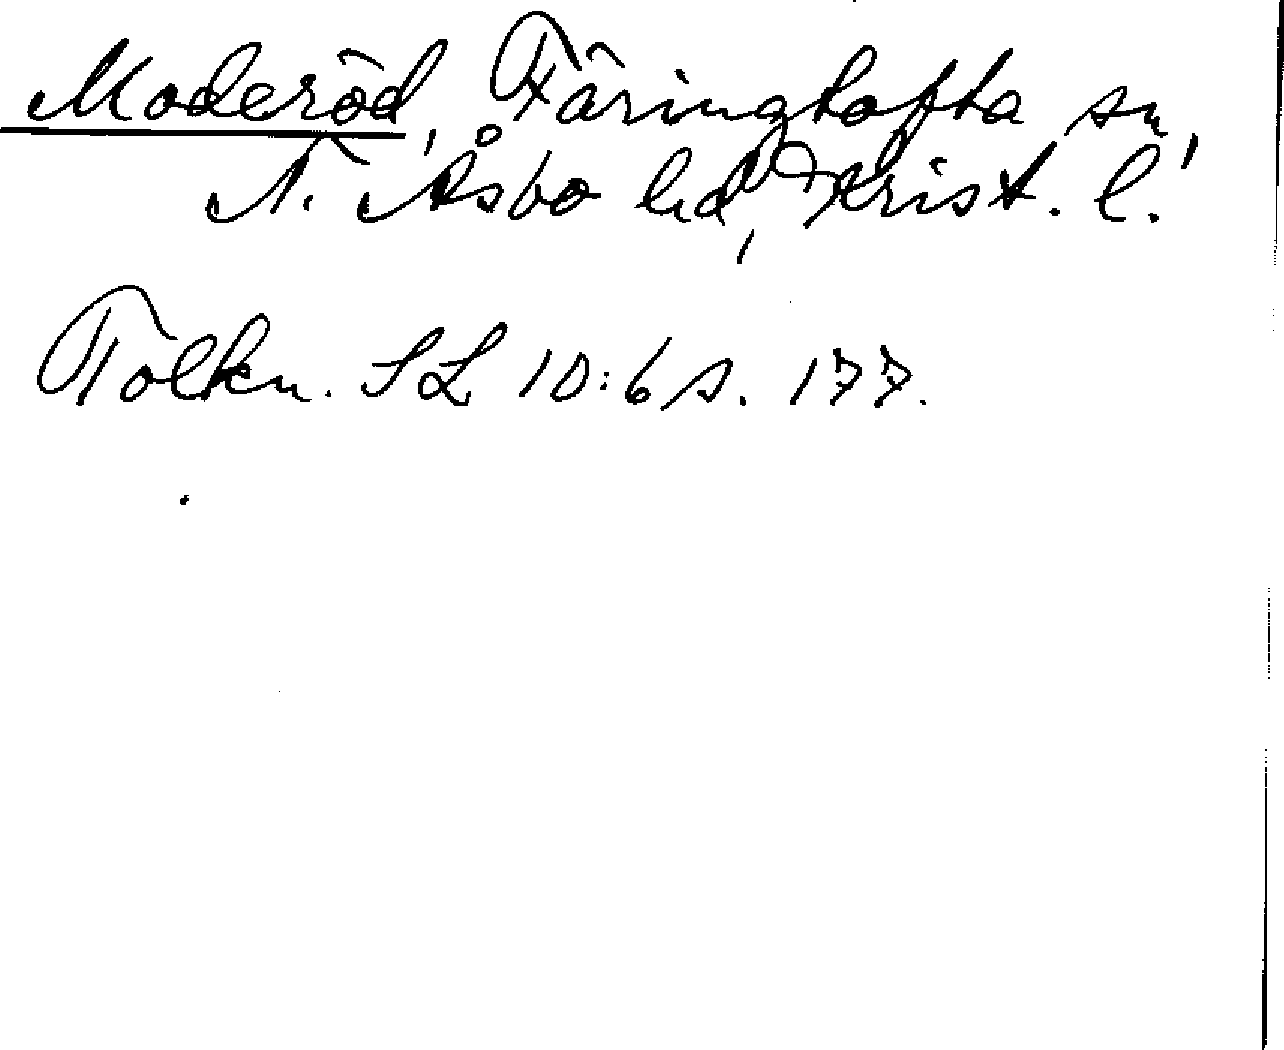 Moderöd, Färingtofta sn,
N. Åsbo hd, Krist. l.
Tolkn. SL 10:6 s. 177.